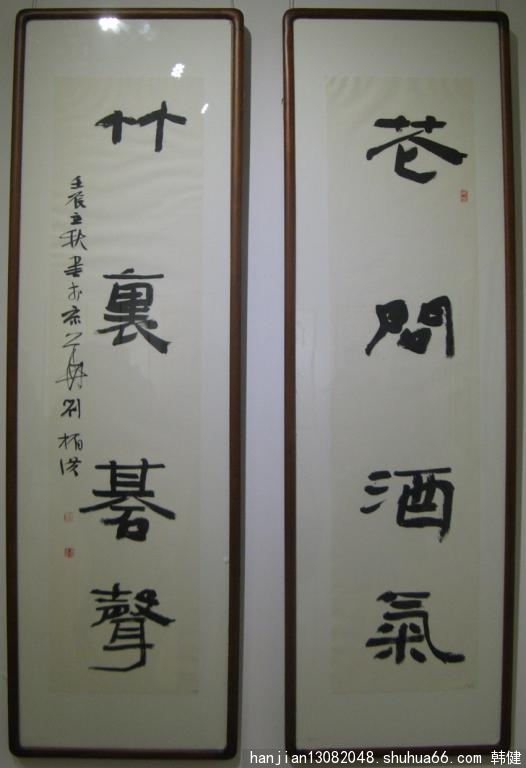 花間酒氣
竹裏碁聲
壬辰立秋書於京
hanjian13082048.shuhua66.com 韩健